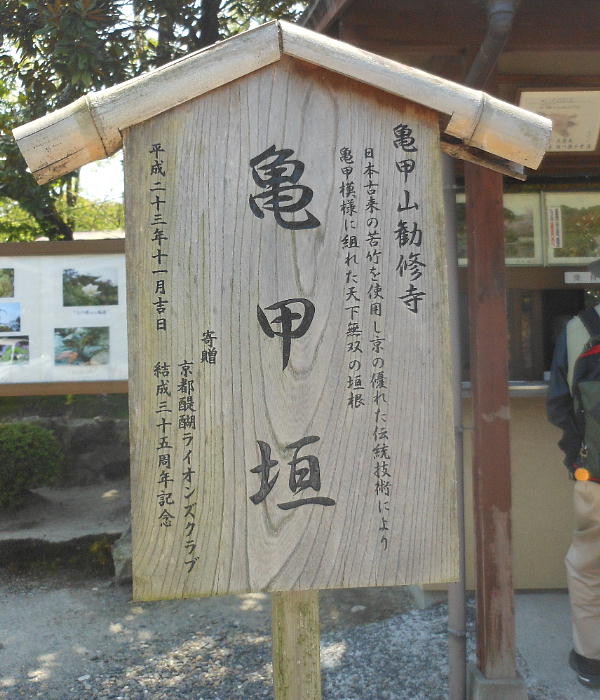 亀甲山勧修寺
日本古来の苦竹を使用し京の優れた伝統技術により
亀甲模様に組れた天下無双の垣根
亀甲垣
寄贈
京都醍醐ライオンズクラブ
結成三十五周年記念
平成二十三年十一月吉日